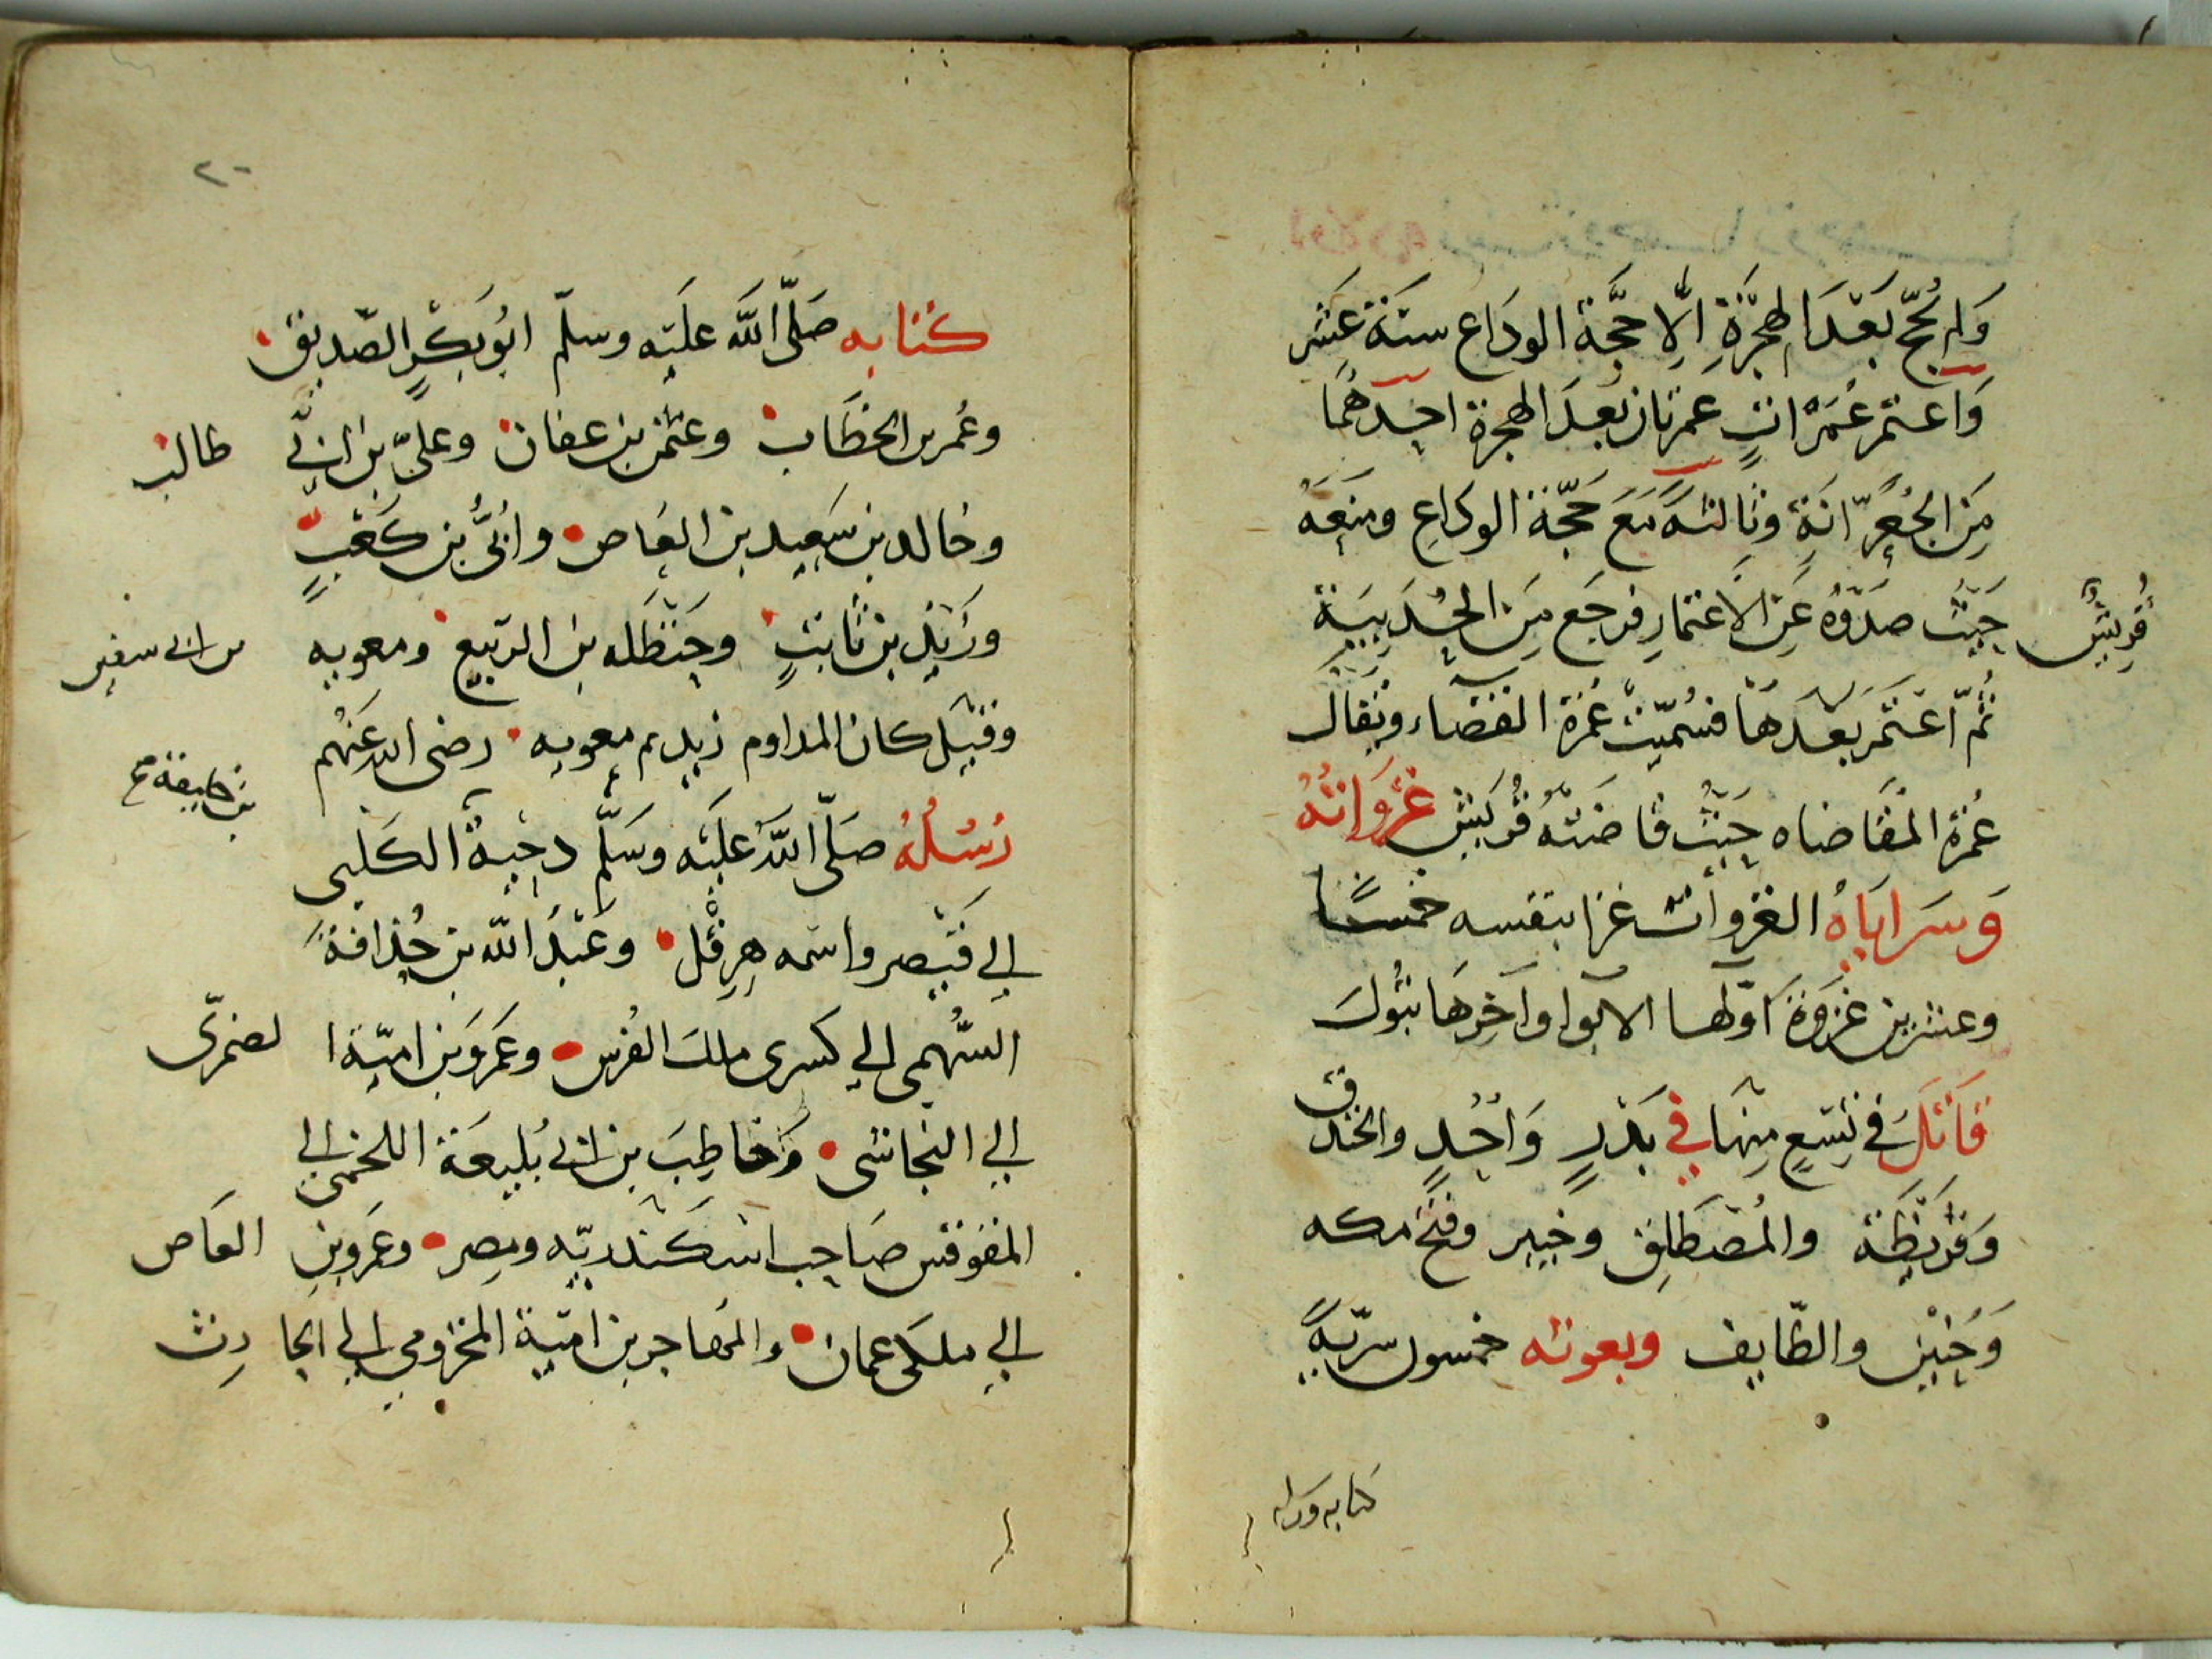 وَلم يَحُجّ بَعْدَ الهِجْرَةِ اِلّا حجَّة الودَاع سنَةَ عَشر
وَاعتمر عُمَرْاتٍ عمرتان بَعدَ الهجرة احِدهُمَا
مِنَ الجُعِرّانَةِ وثالثه مَعَ حَجّة الوداعِ ومنعَهُ
قُريشٌ حَيثُ صَدّوُه عَنِ الاعتمارِ فرجَع مِنَ الحُدَيبيَة
ثمّ اعتَمَر بَعْدَهَا فسُمّيَت عُمرة القضَاء ويُقالُ
عُمرة المقَاضاه حَيثُ قاضَتهُ قُريش غزَوَاتُهُ
وَسَراياهُ الغزوات غزا بنفسه خمسًا
وعشرين غَزوَة اوّلها الابوا وآخِرهَا تبُوك
قَاتَلَ في تِسعٍ مِنهَا في بَدْرٍ وَاُحُدٍ والخندق
وَقُرَيْظَة والمُصْطَلِق وخَيبر وفَتح مكه
وَحُنَيْن والطّايف وبعوثه خمسون سريّةً
كتابه ورسله
٢٠
كُتابه صَلّى اللّه علَيْه وسلّم ابُوبَكرٍ الصّديق
وعُمر بن الخطَاب وعثمن بن عفان وعلىّ بن ابي طالب
وخالد بن سَعِيد بن العَاص وأُبَىُّ بن كَعْبٍ
وزَيْد بن ثَابتٍ وحَنظَله بن الربيع ومعويه بن ابي سفين
وقيل كان المداوم زيد م معويه رضى الله عَنهُم
رُسُلهُ صَلّى اللّهُ عَلَيْه وَسَلَّم دِحْيةُ الكَلبى
الي قَيْصر واسمه هِرقْل وعَبْدُ اللّه بن حُذافَة
السَّهمى الي كسرى ملك الفُرس وعَمرو بن اميّة الضمرىّ
الي النجاشى وَحَاطِبَ بن ابي بُلبعَة اللخمى الي
المقوقس صَاحِب اسكَندريّه ومصر وعَمرو بن العَاص
الي ملكى عمان والمهَاجر بن اميّة المخزومي الي الحارث